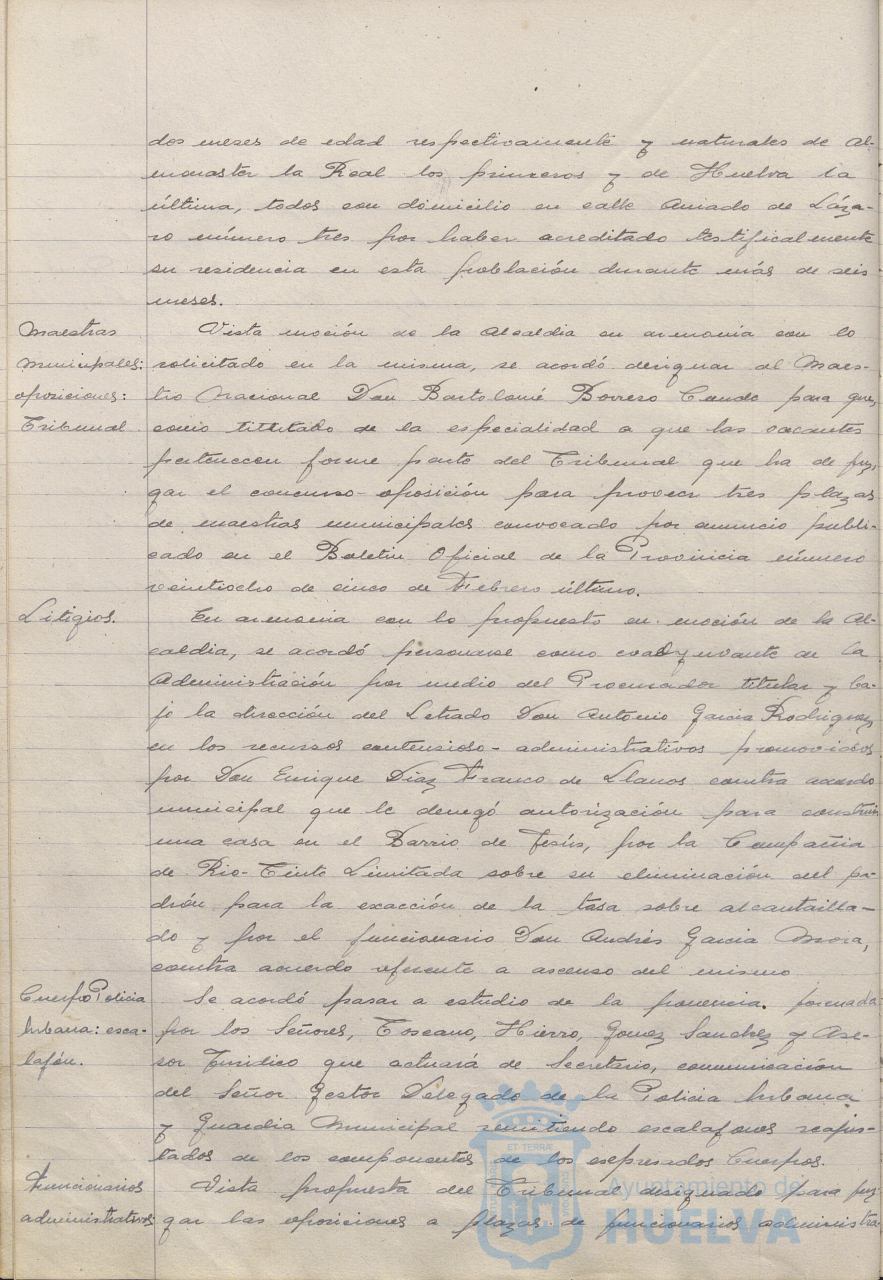 dos meses de edad respectivamente y naturales de Al-
monaster la Real los primeros y de Huelva la
última, todos con domicilio en calle Amado de Láza-
ro número tres por haber acreditado testificalmente
su residencia en esta población durante más de seis
meses.
Maestras
municipales:
oposiciones:
Tribunal
Vista moción de la Alcaldia en armonia con lo
solicitado en la misma, se acordó designar al Maes-
tro Nacional Don Bartolomé Borrero Cando para que,
como titulado de la especialidad a que las vacantes
pertenecen forme parte del Tribunal que ha de juz-
gar el concurso-oposición para proveer tres plazas
de maestras municipales convocado por anuncio publi-
cado en el Boletin Oficial de la Provincia número
veintiocho de cinco de Febrero último.
Litigios.
En armonia con lo propuesto en moción de la Al-
caldia, se acordó personarse como coadyuvante de la
Administración por medio del Procurador titular y ba-
jo la dirección del Letrado Don Antonio Garcia Rodriguez
en los recursos contensioso-administrativos promovidos
por Don Enrique Diaz Franco de Llanos contra acuerdo
municipal que le denegó autorización para construir
una casa en el Barrio de Jesús, por la Compañia
de Rio-Tinto Limitada sobre su eliminación del pa-
drón para la exacción de la tasa sobre alcantarilla-
do y por el funcionario Don Andrés Garcia Mora,
contra acuerdo referente a ascenso del mismo
Cuerpo Policia
Urbana: esca-
lafón.
Se acordó pasar a estudio de la ponencia, formada
por los Señores, Toscano, Hierro, Gomez Sanchez y Ase-
sor Juridico que actuará de Secretario, comunicación
del Señor Gestor Delegado de la Policia Urbana
y Guardia Municipal remitiendo escalafones reajus-
tados de los componentes de los expresados Cuerpos.
Funcionarios
administrativos
Vista propuesta del Tribunal designado para juz
gar las oposiciones a plazas de funcionarios administra-
ET TERRÆ
Ayuntamiento de
HUELVA